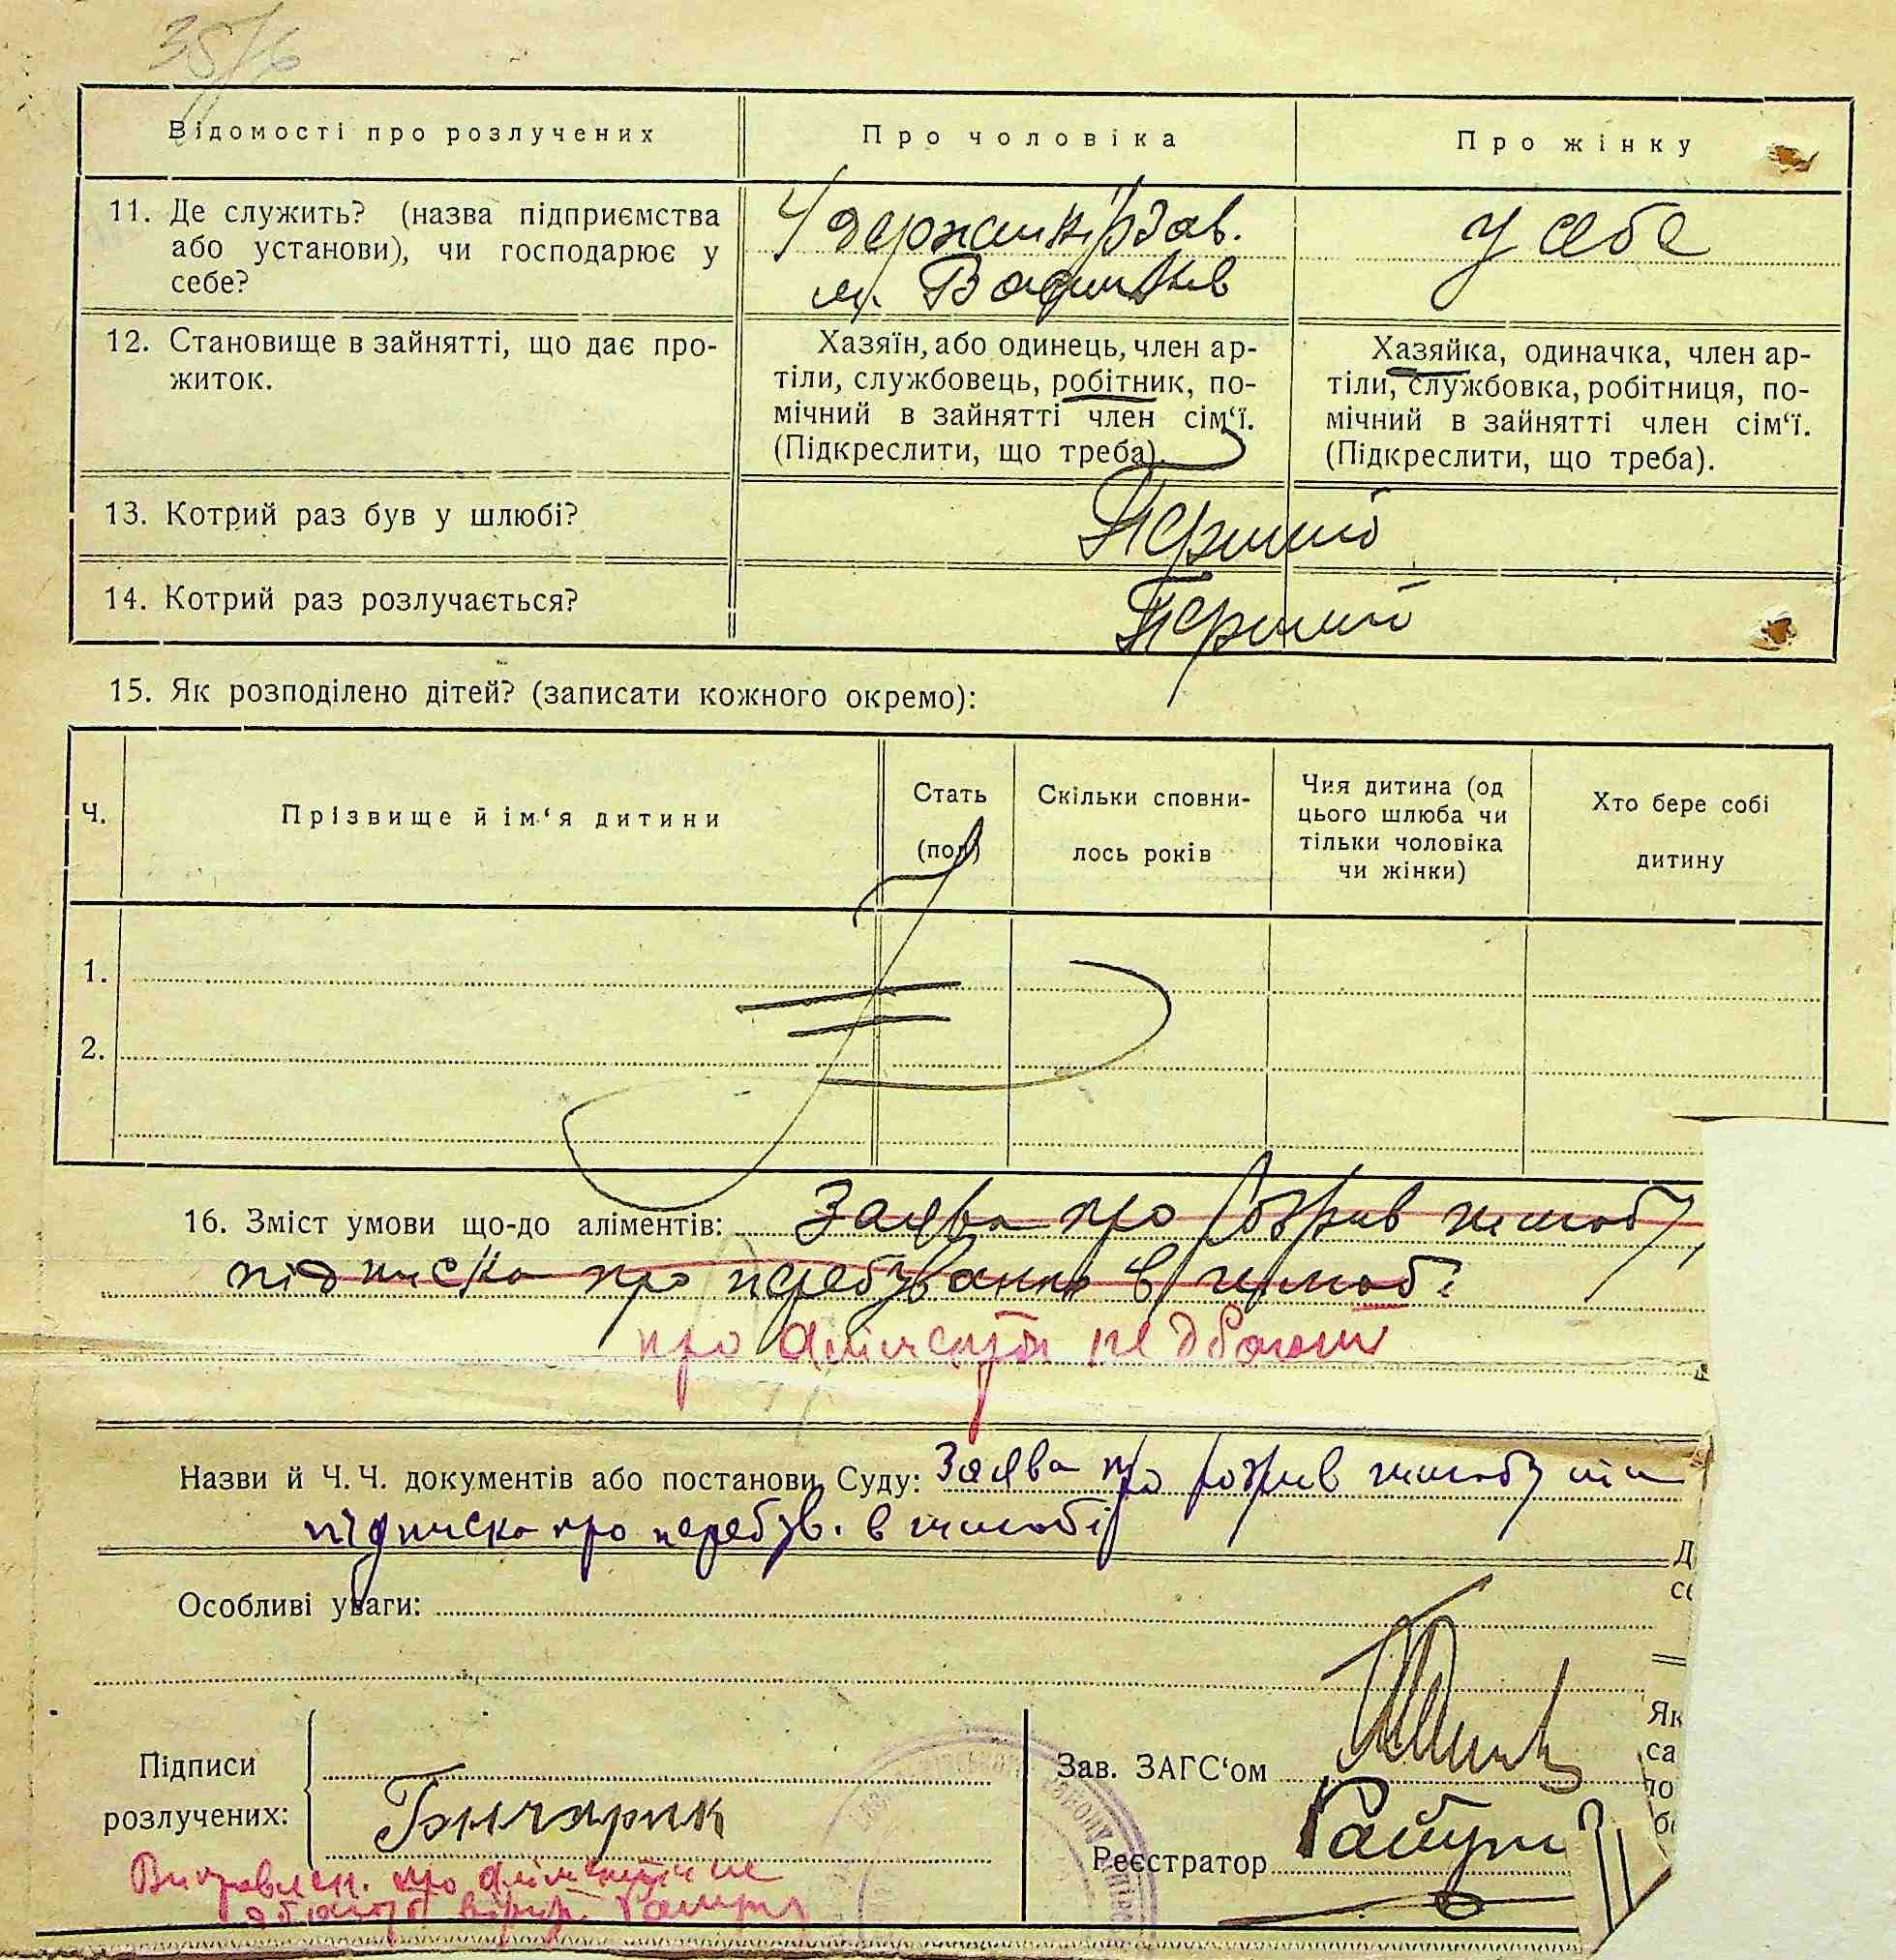 35/6
Відомості про розлучених
Про чоловіка
Про жінку
11. Де служить? (назва підприємства
або установи), чи господарює у
себе?
м.
у себе
12. Становище в зайнятті, що дає про-
житок.
Хазяїн, або одинець, член ар-
тіли, службовець, робітник, по-
мічний в зайнятті член сім‘ї.
(Підкреслити, що треба).
Хазяйка, одиначка, член ар-
тіли, службовка, робітниця, по-
мічний в зайнятті член сім‘ї.
(Підкреслити, що треба).
13. Котрий раз був у шлюбі?
Перший
14. Котрий раз розлучається?
Перший
15. Як розподілено дітей? (записати кожного окремо):
Ч.
Прізвище й ім‘я дитини
Стать
(пол)
Скільки сповни-
лось років
Чия дитина (од
цього шлюба чи
тільки чоловіка
чи жінки)
Хто бере собі
дитину
1.
2.
16. Зміст умови що-до аліментів: Заява про розрив шлюбу,
підписка про перебування в шлюбі
про аліменти не дбають
Назви й Ч. Ч. документів або постанови Суду: Заява про розрив шлюбу
підписка про перебув. в шлюбі
Особливі уваги:
Підписи
розлучених:
Бичарик
Зав. ЗАГС‘ом
Реєстратор
про аліменти не
Д
Як
са